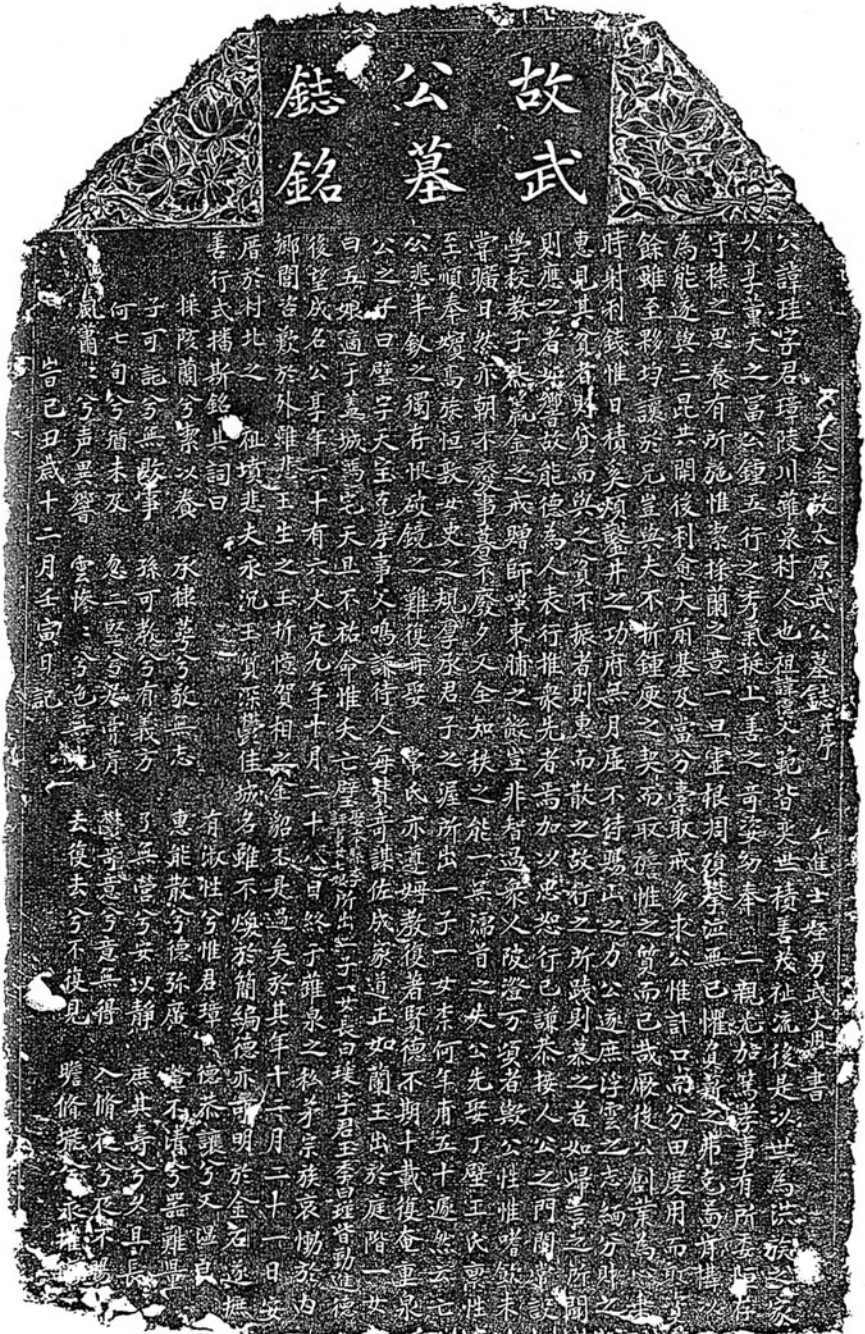 故武
公墓
鋕銘
大金故太原武公墓鋕并序
進士姪男武大 書
公諱珪字君璋陵川蕹泉村人也祖諱 父範皆奕世積善茂祉流後是以世為洪族之家
以享薰天之富公鍾五行之秀氣挺上善之奇姿幼奉 二親尤加篤孝事有所委恒存
守襟之思養有所施惟索採蘭之意一旦靈根凋殞攀泣無已懼負薪之弗克為肯構以
為能遂與三昆共開後利愈大前基及當分橐取戒多求公惟計口而分田度用而取
餘雖至夥均讓於兄豈與夫不折鍾庾之契而取 惟之質而已哉厥後公創業為心乘
時射利錢惟日積奚煩鑿井之功府無月虛不待賜山之力公遂庶浮雲之志緬分財之
惠見其貧者則貸而與之貧不振者則惠而散之故行之所踐則慕之者如歸言之所聞
則應之者如響故能德為人表行惟衆先者焉加以忠恕行己謙恭接人公之門閭常設
學校教子慕籯金之戒贈師嗤束脯之餽豈非智過衆人陂澄万頃者歟公性惟嗜飲未
嘗曠日然亦朝不廢事暮不廢夕又全知秩之能一無濡首之失公先娶丁壁王氏禀性
至順奉 高族恒敦女史之規 承君子之渥所出一子一女柰何年甫五十遽然云亡
公悲半釼之獨存恨破鏡之難復再娶 常氏亦遵姆教復著賢德不期十載復奄重泉
公之子曰璧字天寶克孝事父鳴謙待人每賛奇謀佐成家道正如蘭玉出於庭階一女
曰五娘適于蓋城焉宅天且不祐命惟夭亡璧 李 所出二子一女長曰琰字君玉季曰珵皆勤進德
後望成名公享年六十有六大定九年十月二十八日終于蕹泉之私第宗族哀慟於内
鄉閭咨歎於外雖悲王生之玉折 賀相之金貂不是過矣於其年十二月二十一日安
厝於村北之 祖墳悲夫永沉玉質深欝佳城名雖不煥於簡編德亦可明於金石遂摭
善行式播斯銘其詞曰
採陔蘭兮索以養 承棣萼兮敬無忘 有淑性兮惟君璋 德恭讓兮又温良
子可託兮無敗事 孫可教兮有義方 惠能散兮德弥廣 不清兮器難量
何七旬兮猶未及 忽二竪兮 了無營兮安以静 庶其壽兮久且長
風肅二兮声異響 雲慘二兮色 意兮竟無得 入脩夜兮不 暘
去復去兮不復見 瞻脩
旹己丑歳十二月壬寅日記